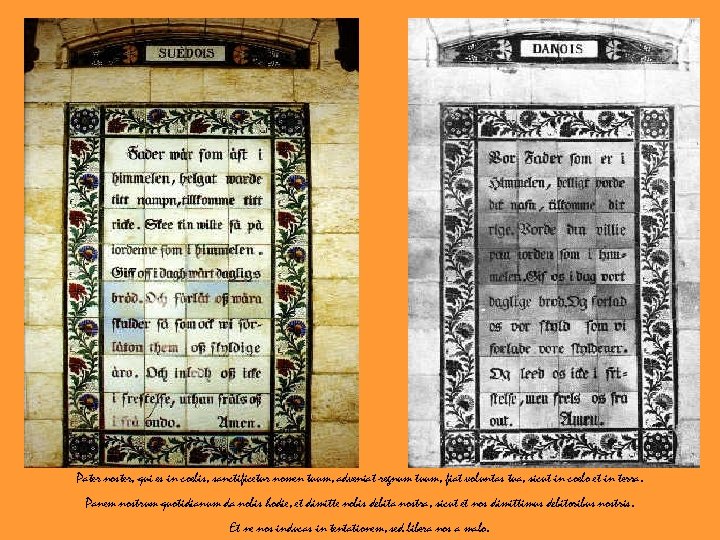 SUÉDOIS
Fader wår som äst i
himmelen, helgat warde
titt nampn, tillkomme titt
ricke. Skee tin wilie så på
iordenne som i himmelen.
Giff oss i dagh wårt dagligs
bröd. Och förlåt oß wåra
skulder så som ock wi för-
låton them oß skyldige
äro. Och inledh oß icke
i frestelse, uthan fräls oß
i frå ondo. Amen.
DANOIS
Vor Fader som er i
Himmelen, helligt vorde
dit nafn, tilkomme dit
rige. Vorde din villie
paa iorden som i him-
melen. Gif os i dag vort
daglige brod. Og forlad
os vor skyld som vi
forlade vore skyldener.
Og leed os icke i fri-
stelse, men frels os fra
ont. Amen.
Pater noster, qui es in coelis, sanctificetur nomen tuum, adveniat regnum tuum, fiat voluntas tua, sicut in coelo et in terra.
Panem nostrum quotidianum da nobis hodie, et dimitte nobis debita nostra, sicut et nos dimittimus debitoribus nostris.
Et ne nos inducas in tentationem, sed libera nos a malo.